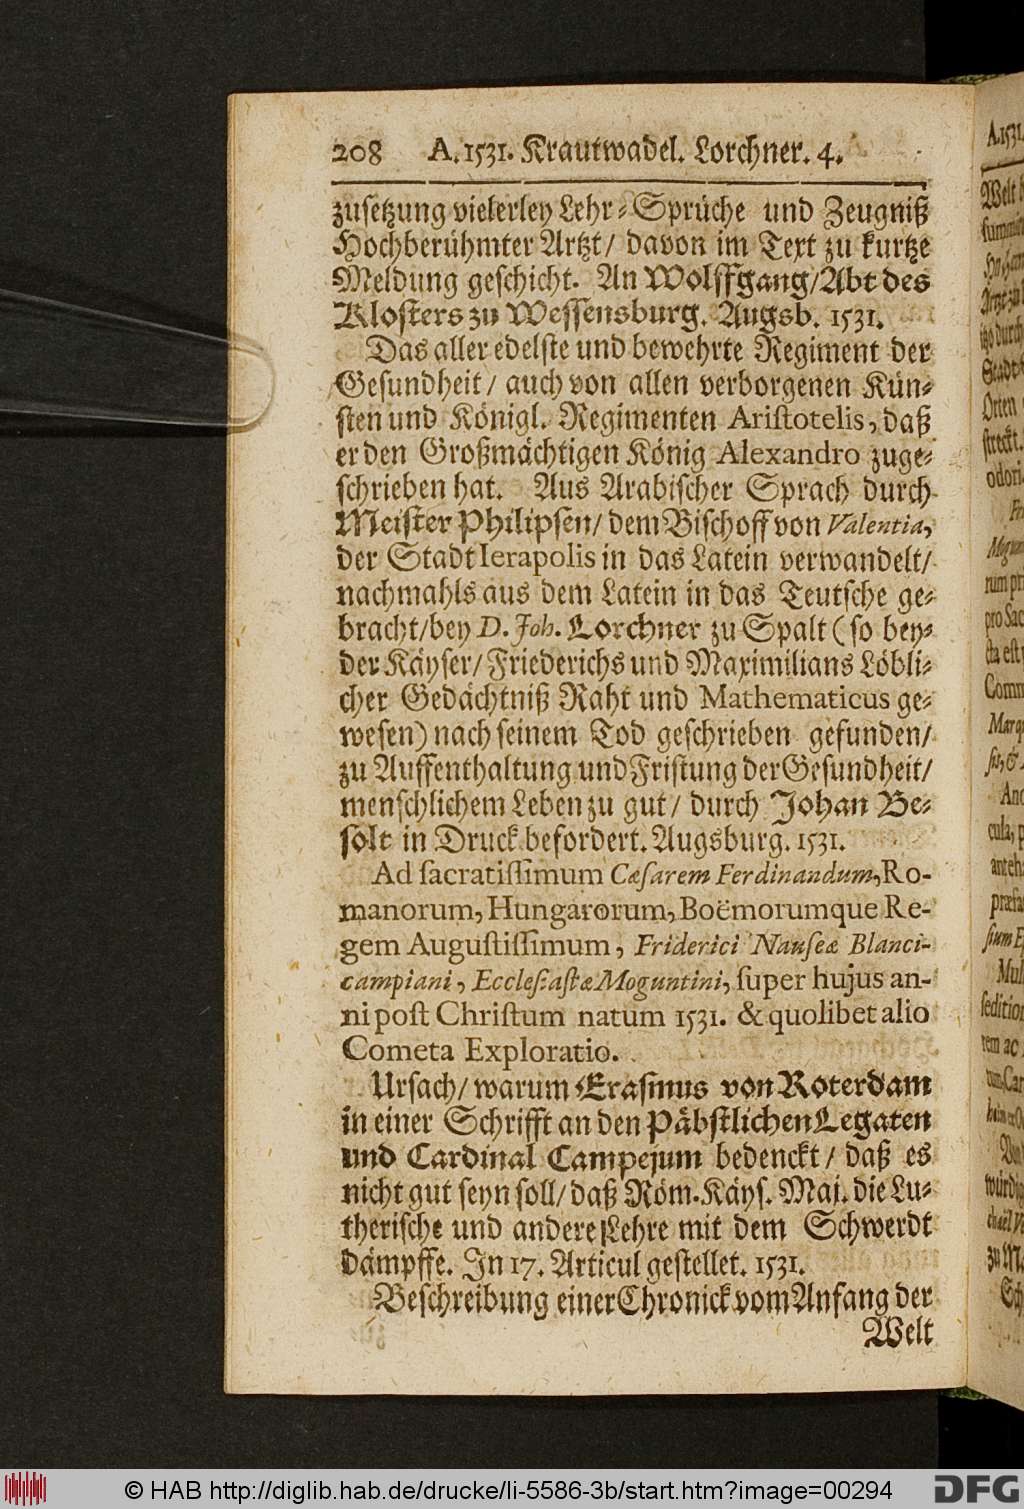 208 A. 1531. Krautwadel. Lorchner. 4.
zusetzung vielerley Lehr-Sprüche und Zeugniß
Hochberühmter Artzt/ davon im Text zu kurtze
Meldung geschicht. An Wolffgang/Abt des
Klosters zu Wessensburg. Augsb. 1531.
Das aller edelste und bewehrte Regiment der
Gesundheit/ auch von allen verborgenen Kün-
sten und Königl. Regimenten Aristotelis, daß
er den Großmächtigen König Alexandro zuge-
schrieben hat. Aus Arabischer Sprach durch
Meister Philipsen/ dem Bischoff von Valentia,
der Stadt Ierapolis in das Latein verwandelt/
nachmahls aus dem Latein in das Teutsche ge-
bracht/bey D. Joh. Lorchner zu Spalt (so bey-
der Käyser/ Friederichs und Maximilians Löbli-
cher Gedächtniß Raht und Mathematicus ge-
wesen) nach seinem Tod geschrieben gefunden/
zu Auffenthaltung und Fristung der Gesundheit/
menschlichem Leben zu gut/ durch Johan Be-
solt in Druck befordert. Augsburg. 1531.
Ad sacratissimum Cæsarem Ferdinandum, Ro-
manorum, Hungarorum, Boëmorumque Re-
gem Augustissimum, Friderici Nauseæ Blanci-
campiani, Ecclesiastæ Moguntini, super hujus an-
ni post Christum natum 1531. & quolibet alio
Cometa Exploratio.
Ursach/ warum Erasmus von Roterdam
in einer Schrifft an den Päbstlichen Legaten
und Cardinal Campejum bedenckt/ daß es
nicht gut seyn soll/ daß Röm. Käys. Maj. die Lu-
therische und andere Lehre mit dem Schwerdt
dämpffe. In 17. Articul gestellet. 1531.
Beschreibung einer Chronick vom Anfang der
Welt
© HAB http://diglib.hab.de/drucke/li-5586-3b/start.htm?image=00294
DFG